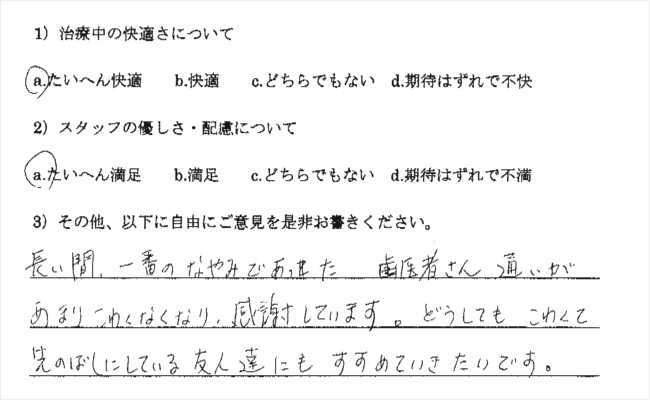 1）治療中の快適さについて
a.たいへん快適　b.快適　c.どちらでもない　d.期待はずれで不快
2）スタッフの優しさ・配慮について
a.たいへん満足　b.満足　c.どちらでもない　d.期待はずれで不満
3）その他、以下に自由にご意見を是非お書きください。
長い間、一番のなやみであった 歯医者さん 通いが
あまりこわくなくなり、感謝しています。どうしても こわくて
先のばしにしている友人達にも すすめていきたいです。